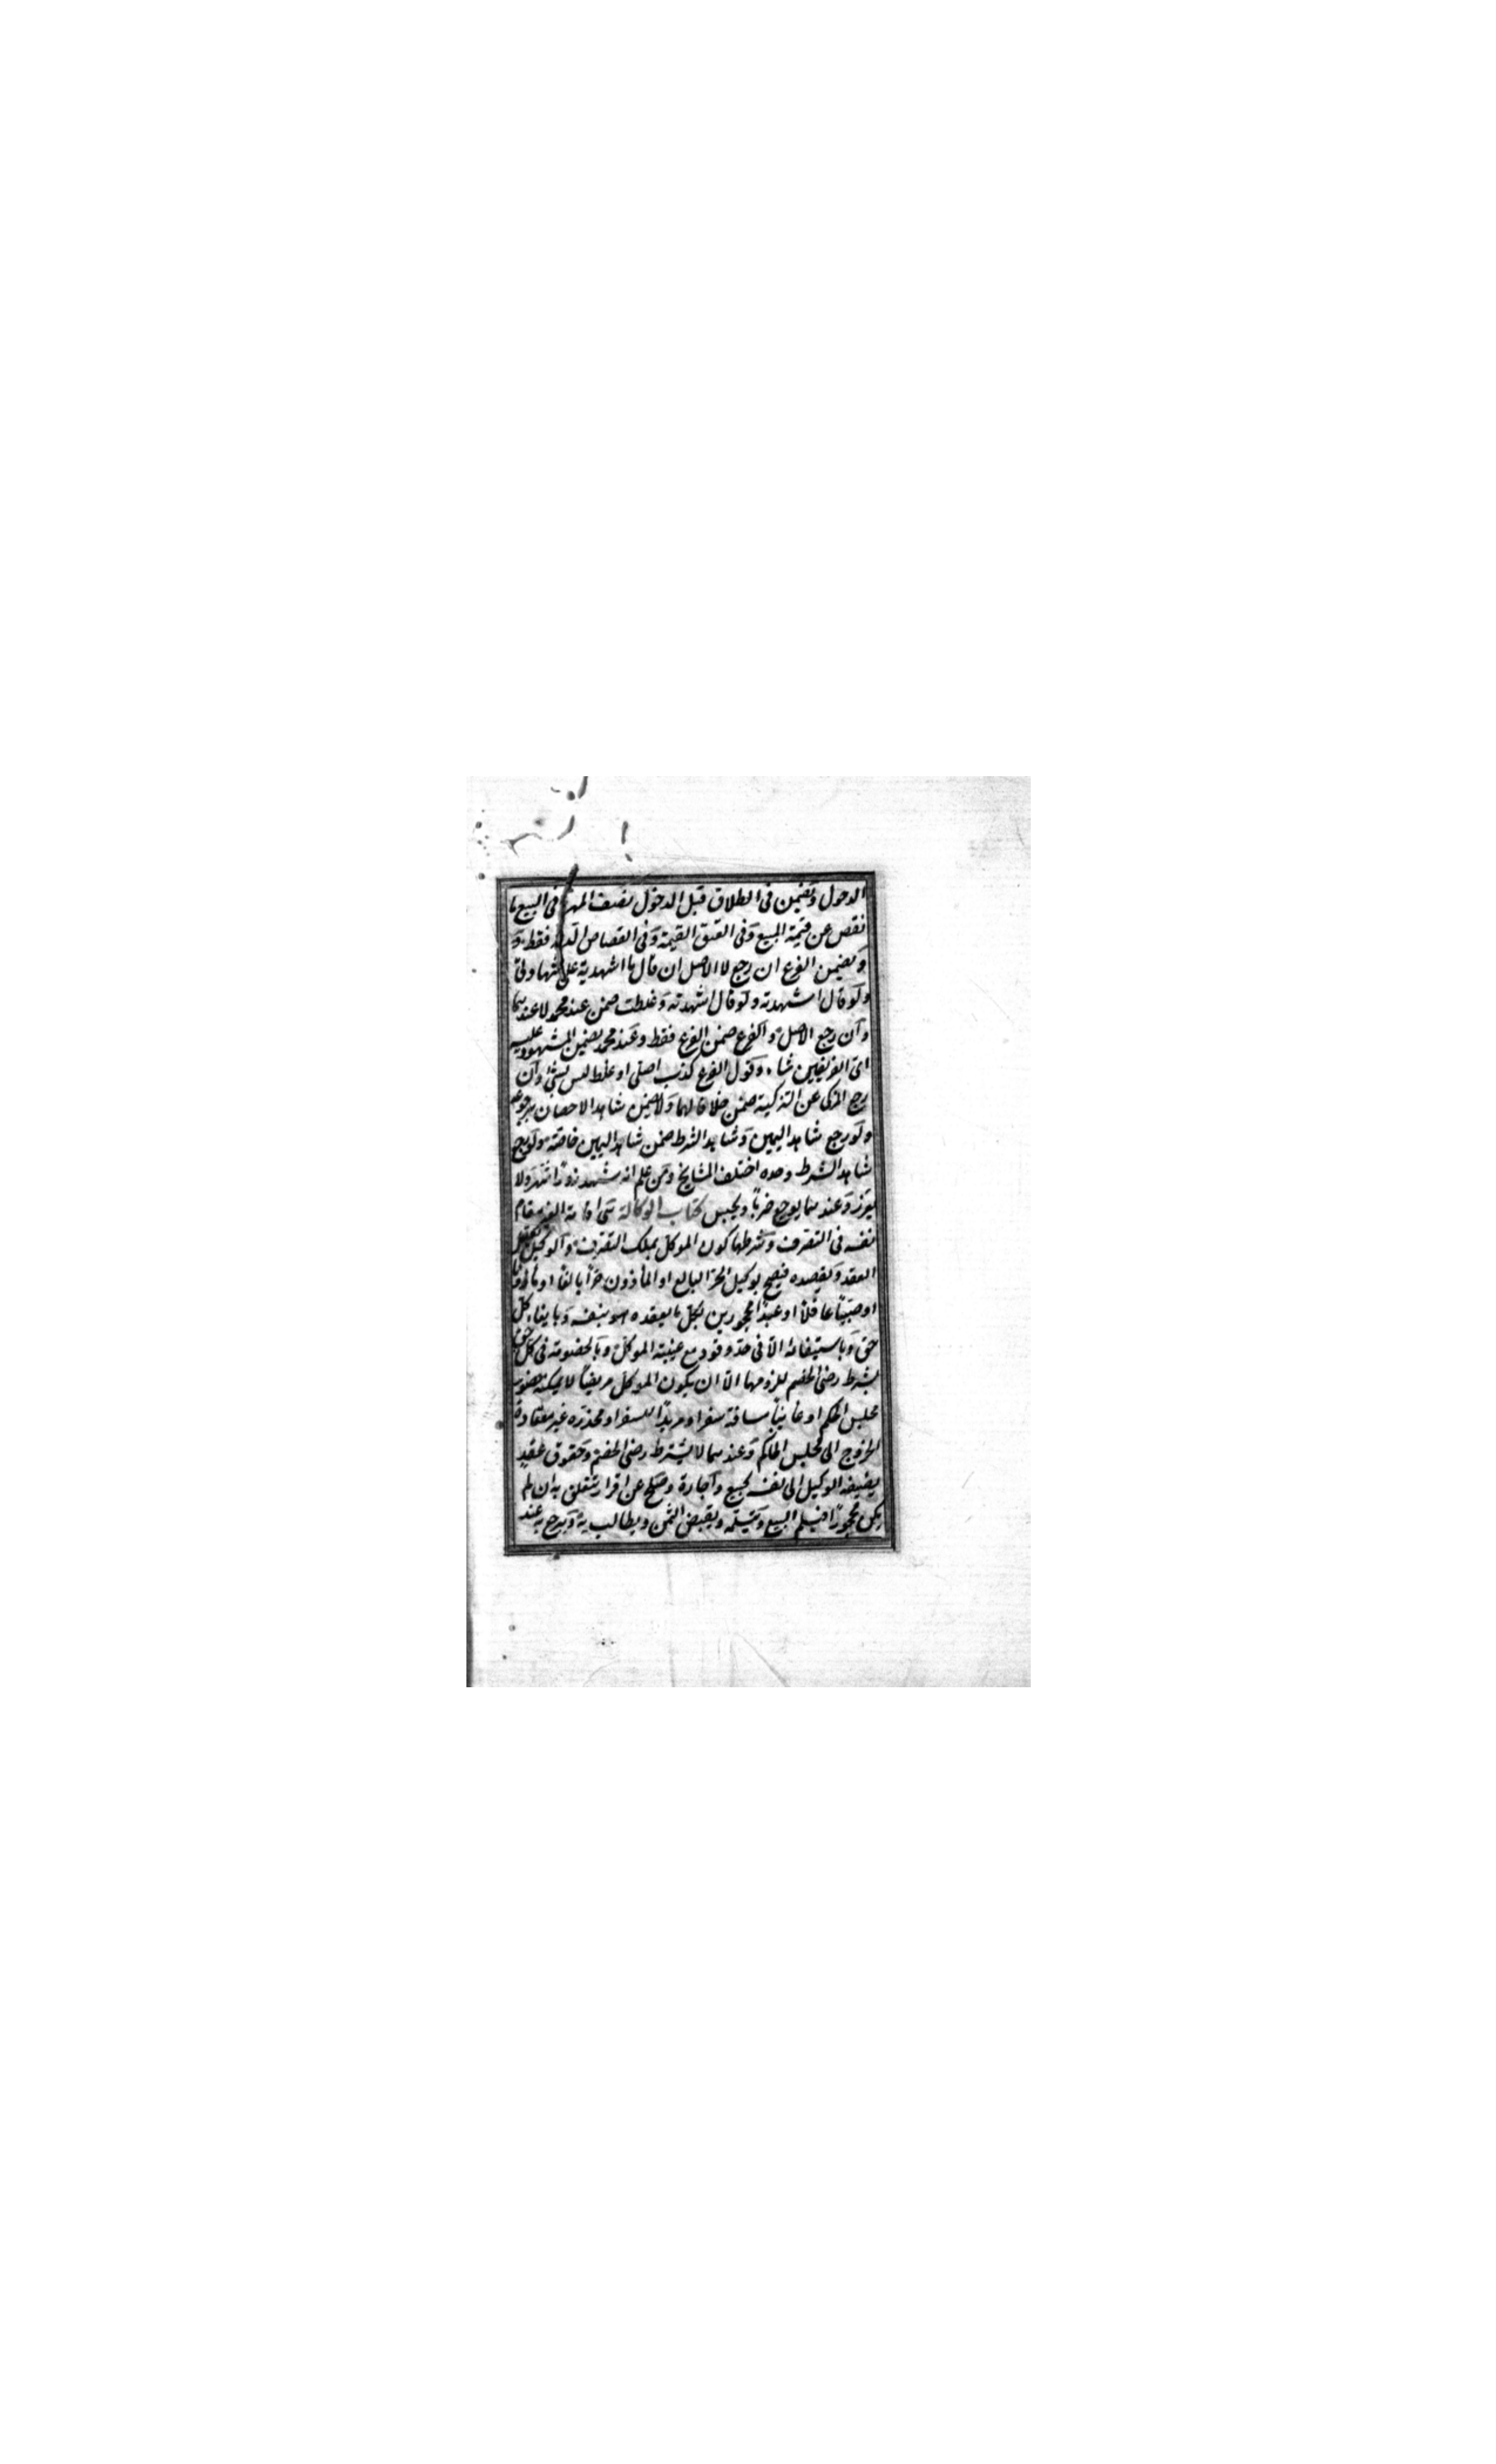 الدخول وتضمن فى الطلاق قبل الدخول نصف المهر فى البيع ما
نقص عن قيمة المبيع وفى العتق القيمة وفى القصاص الدية فقط و
ويضمن الفرع ان رجع لا الاصل ان قال ما اشهدته على
ولو قال اشهدته ولو قال اشهدته وغلطت ضمن عند محمد لا عندهما
وان رجع الاصل والفرع ضمن الفرع فقط وعند محمد يضمن المشهود عليه
اى الفريقين شاء وقول الفرع كذب اصلى او غلط ليس بشئ وان
رجع المزكى عن التزكية ضمن خلافا لهما ولا يضمن شاهد الاحصان برجوعه
ولو رجع شاهد اليمين وشاهد الشرط ضمن شاهد اليمين خاصة ولو رجع
شاهد الشرط وحده اختلف المشايخ ومن علم انه شهد زورا شهر ولا
يعزر وعندهما يوجع ضربا ويحبس كتاب الوكالة هى اقامة الغير مقام
نفسه فى التصرف وشرطها كون الموكل يملك التصرف والوكيل يعقل
العقد ويقصده فيصح توكيل الحر البالغ او المأذون حرا بالغا او مأذونا
او صبيا عاقلا او عبدا محجورين بكل ما يعقده هو بنفسه وبايفاء كل
حق وباستيفائه الا فى حد وقود مع غيبة الموكل وبالخصومة فى كل حق
بشرط رضى الخصم للزومها الا ان يكون الموكل مريضا لا يمكنه حضور
مجلس الحكم او غائبا مسافة سفر او مريدا للسفر او مخدرة غير معتادة
الخروج الى مجلس الحاكم وعندهما لا يشترط رضى الخصم وحقوق عقد
يضيفه الوكيل الى نفسه كبيع واجارة وصلح عن اقرار تتعلق به ان لم
يكن محجورا فيسلم المبيع ويتسلمه ويقبض الثمن ويطالب به ويرجع به عند